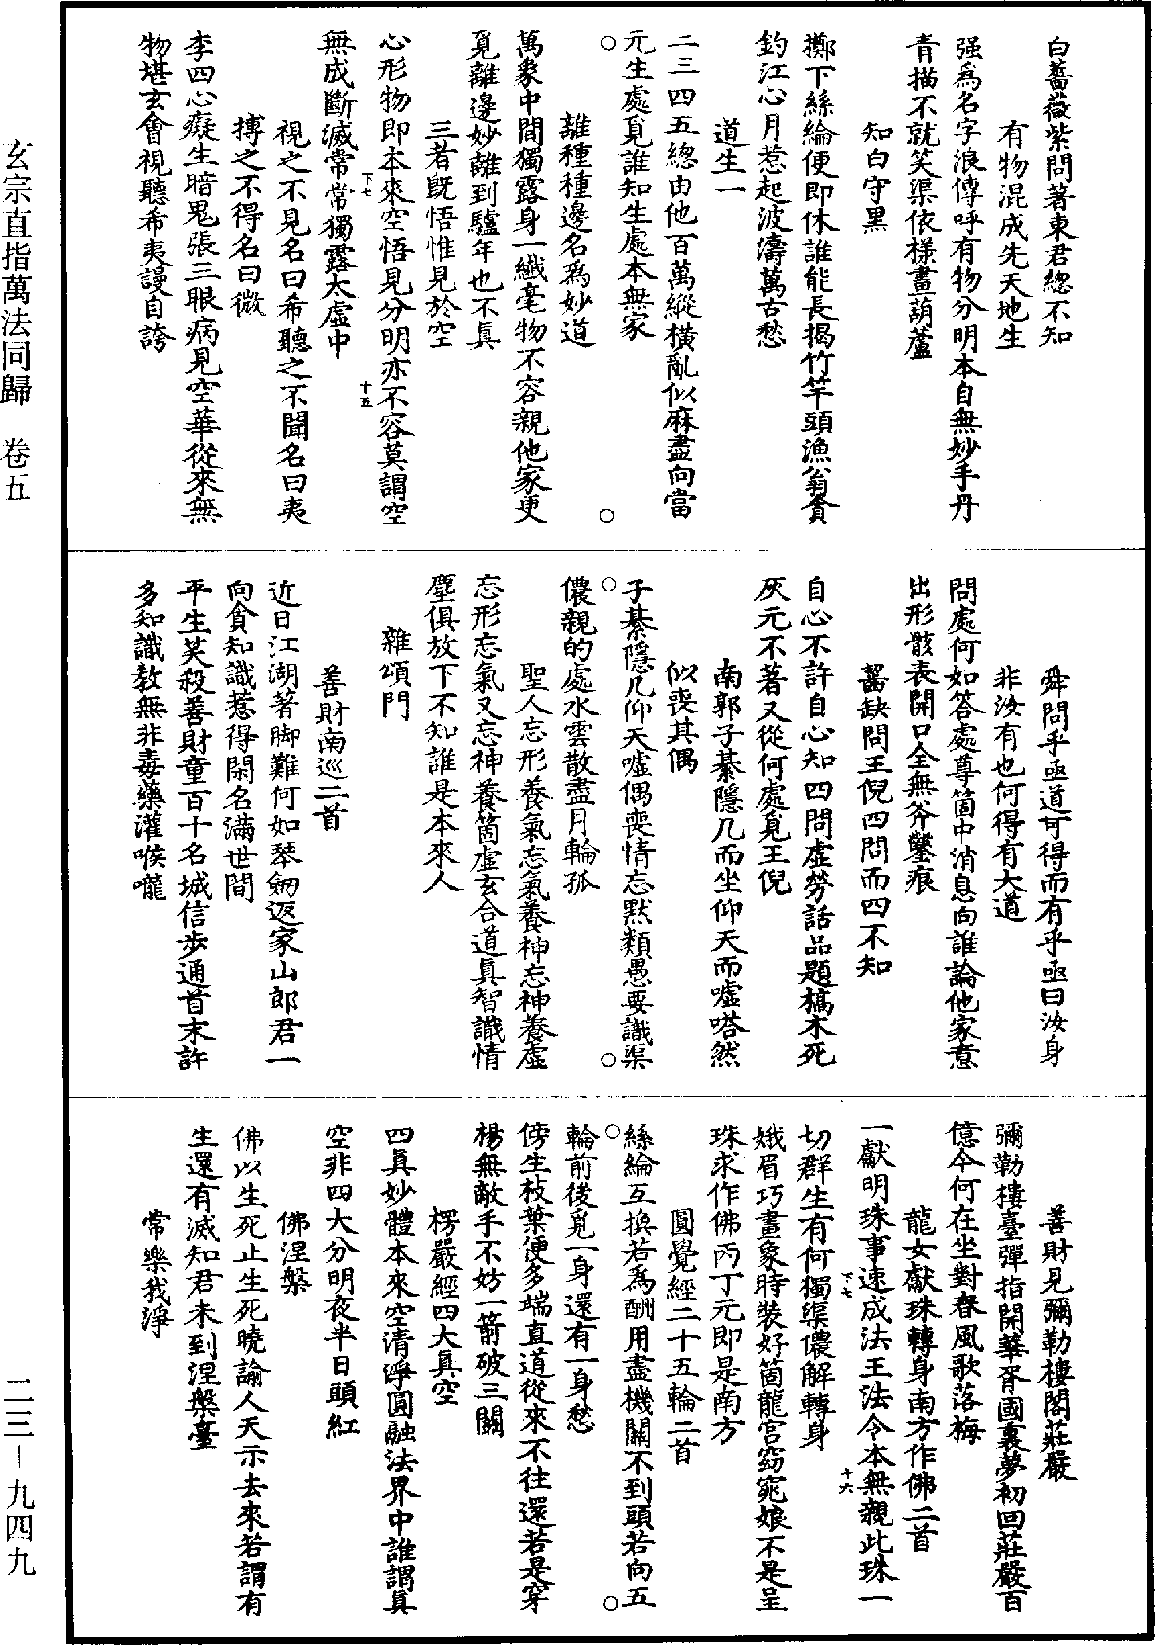 白薔薇紫問著東君總不知
有物混成先天地生
强爲名字浪傳呼有物分明本自無妙手丹
青描不就笑渠依樣畫葫蘆
知白守黑
擲下絲綸便即休誰能長揭竹竿頭漁翁貪
釣江心月惹起波濤萬古愁
道生一
二三四五總由他百萬縱橫亂似麻盡向當
元生處覓誰知生處本無家
離種種邊名爲妙道
萬象中間獨露身一纖毫物不容親他家更
覓離邊妙離到驢年也不真
三者旣悟惟見於空
心形物即本來空悟見分明亦不容莫謂空
下七
十五
無成斷滅常常獨露太虛中
視之不見名曰希聽之不聞名曰夷
搏之不得名曰微
李四心癡生暗鬼張三眼病見空華從來無
物堪玄會視聽希夷謾自誇
舜問乎丞道可得而有乎丞曰汝身
非汝有也何得有大道
問處何如答處尊箇中消息向誰論他家意
出形骸表開口全無斧鑿痕
齧缺問王倪四問而四不知
自心不許自心知四問虛勞話品題槁木死
灰元不著又從何處覓王倪
南郭子綦隱几而坐仰天而噓嗒然
似喪其偶
子綦隱几仰天噓偶喪情忘黙類愚要識渠
儂親的處水雲散盡月輪孤
聖人忘形養氣忘氣養神忘神養虛
忘形忘氣又忘神養箇虛玄合道真智識情
塵俱放下不知誰是本來人
雜頌門
善財南巡二首
近日江湖著脚難何如琴劒返家山郎君一
向貪知識惹得閑名滿世間
平生笑殺善財童百十名城信步通首末許
多知識教無非毒藥灌喉嚨
善財見彌勒樓閣莊嚴
彌勒樓臺彈指開華胥國裏夢初回莊嚴百
億今何在坐對春風歌落梅
龍女獻珠轉身南方作佛二首
一獻明珠事速成法王法令本無親此珠一
下七
十六
切群生有何獨渠儂解轉身
娥眉巧畫象時裝好箇龍宫窈窕娘不是呈
珠求作佛丙丁元即是南方
圓覺經二十五輪二首
絲綸互換若爲酬用盡機關不到頭若向五
輪前後覓一身還有一身愁
傍生枝葉便多端直道從來不往還若是穿
楊無敵手不妨一箭破三關
楞嚴經四大真空
四真妙體本來空清淨圓融法界中誰謂真
空非四大分明夜半日頭紅
佛涅槃
佛以生死止生死曉諭人天示去來若謂有
生還有滅知君未到涅槃臺
常樂我淨
玄宗直指萬法同歸 卷五
二三—九四九